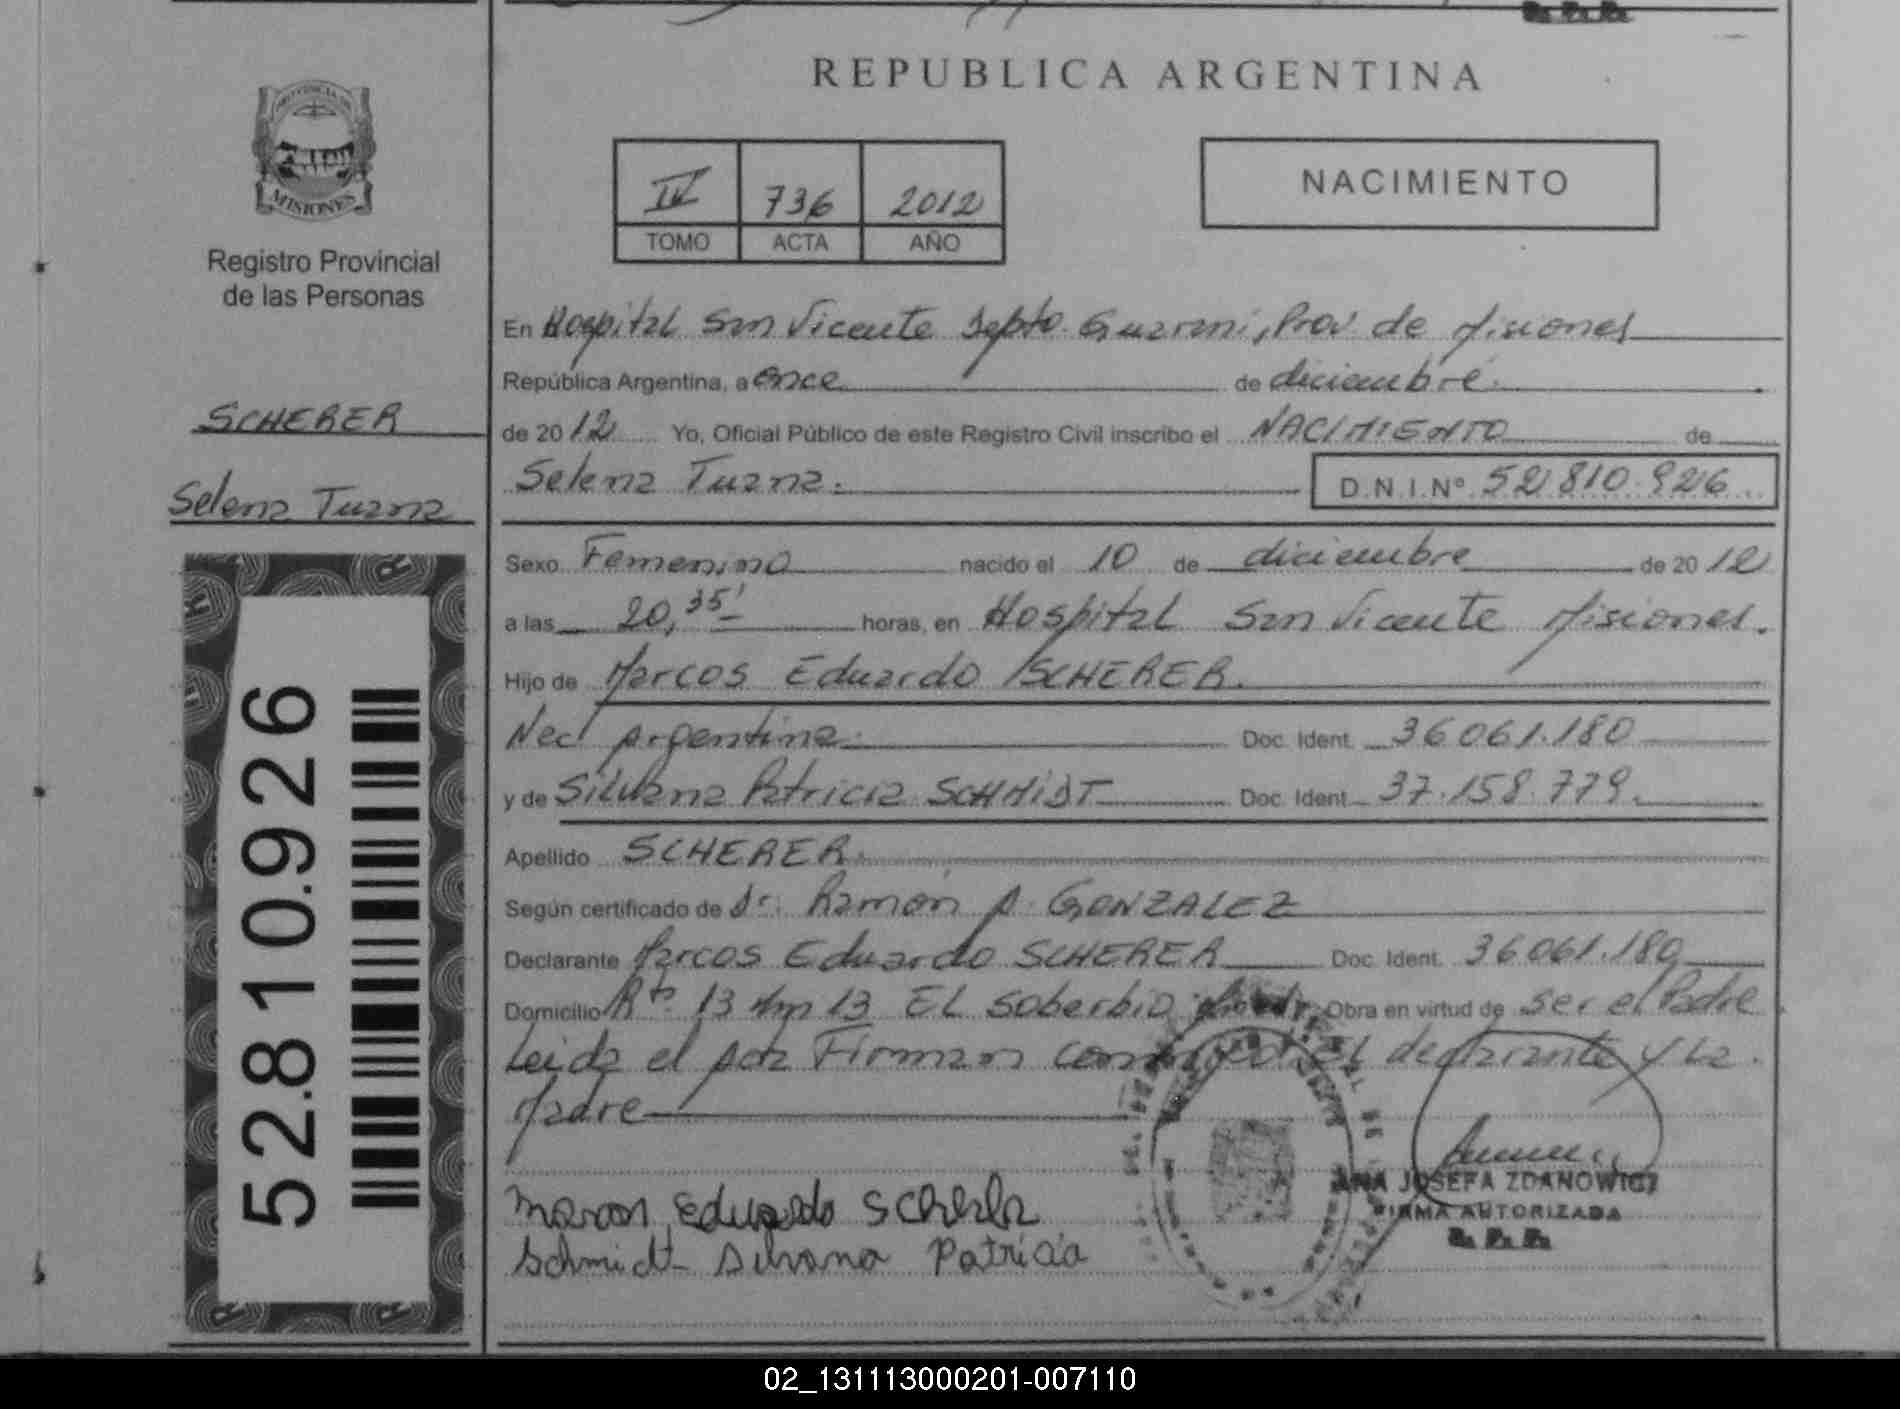 R. P. P.
REPUBLICA ARGENTINA
PROVINCIA DE
MISIONES
Registro Provincial
de las Personas
IV 736 2012
TOMO ACTA AÑO
NACIMIENTO
En Hospital San Vicente Depto. Guarani, Prov de Misiones
República Argentina, a once de diciembre.
de 2012 Yo, Oficial Público de este Registro Civil inscribo el NACIMIENTO de
Selena Tuana. D.N.I.Nº 52.810.926
SCHERER
Selena Tuana
Sexo Femenino nacido el 10 de diciembre de 2012
a las 20,35' horas, en Hospital San Vicente Misiones.
Hijo de Marcos Eduardo SCHERER.
Nac argentina. Doc. Ident. 36.061.180
y de Silvana Patricia SCHMIDT Doc. Ident. 37.158.779.
Apellido SCHERER.
Según certificado de Dr. Ramón A. GONZALEZ
Declarante Marcos Eduardo SCHERER Doc. Ident. 36.061.180
Domicilio Rta. 13 Km 13 EL Soberbio Obra en virtud de ser el Padre
Leida el acta Firman conmigo EL declarante y La
Madre
Marcos Eduardo Scherer
Schmidt Silvana Patricia
ANA JOSEFA ZDANOWICZ
FIRMA AUTORIZADA
R. P. P.
52.810.926
02_131113000201-007110